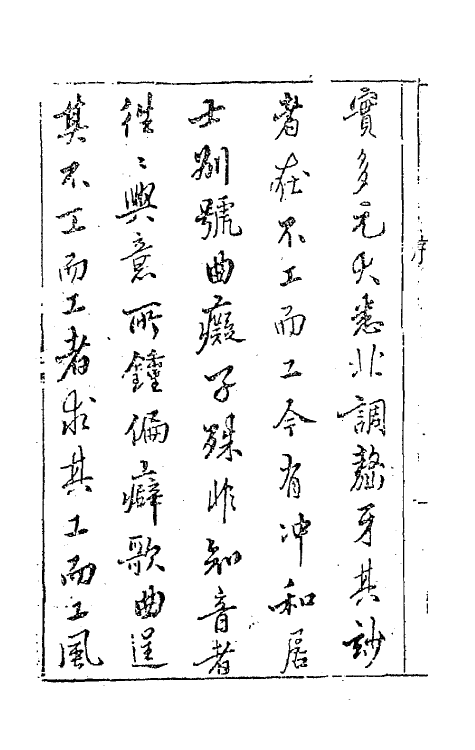 序
實多元悉北調聱牙其妙
者在不工而工今有冲和居
士別號曲癡子殊非知音者
徃〻興意所鍾偏癖歌曲逞
其不工而工者求其工而工風